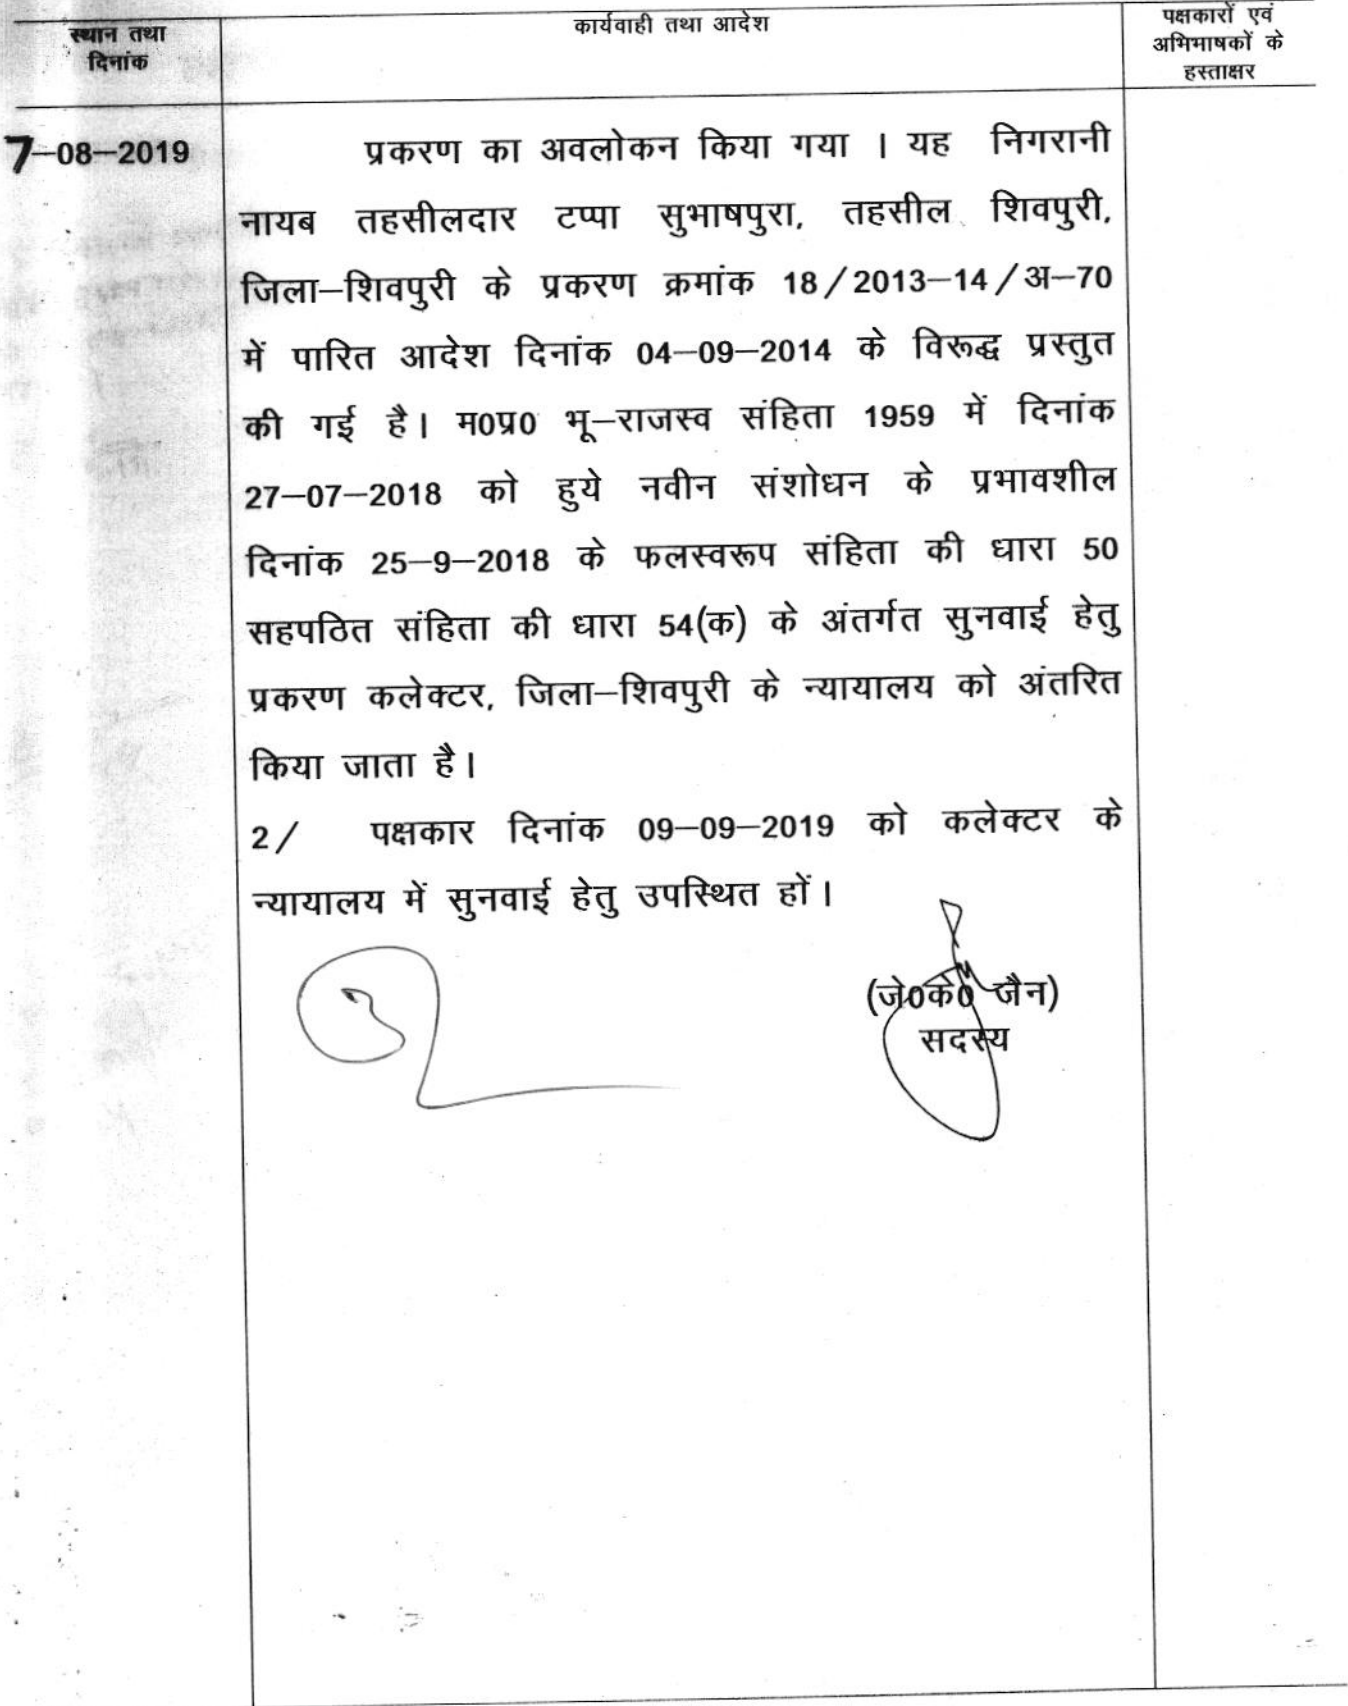 स्थान तथा
दिनांक
कार्यवाही तथा आदेश
पक्षकारों एवं
अभिभाषकों के
हस्ताक्षर
7-08-2019
प्रकरण का अवलोकन किया गया । यह निगरानी
नायब तहसीलदार टप्पा सुभाषपुरा, तहसील शिवपुरी,
जिला-शिवपुरी के प्रकरण क्रमांक 18/2013-14/अ-70
में पारित आदेश दिनांक 04-09-2014 के विरूद्ध प्रस्तुत
की गई है। म0प्र0 भू-राजस्व संहिता 1959 में दिनांक
27-07-2018 को हुये नवीन संशोधन के प्रभावशील
दिनांक 25-9-2018 के फलस्वरूप संहिता की धारा 50
सहपठित संहिता की धारा 54(क) के अंतर्गत सुनवाई हेतु
प्रकरण कलेक्टर, जिला-शिवपुरी के न्यायालय को अंतरित
किया जाता है।
2/ पक्षकार दिनांक 09-09-2019 को कलेक्टर के
न्यायालय में सुनवाई हेतु उपस्थित हों।
(जे0के0 जैन)
सदस्य